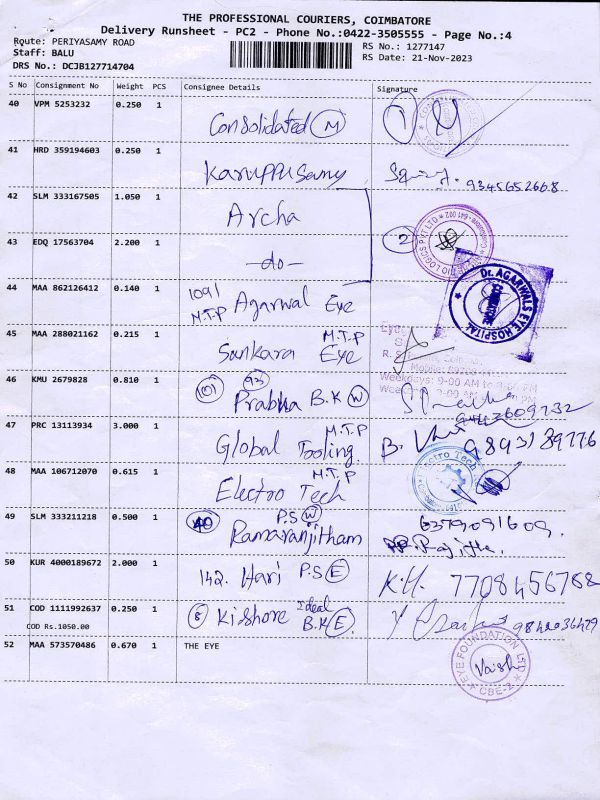 THE PROFESSIONAL COURIERS, COIMBATORE
Delivery Runsheet - PC2 - Phone No.:0422-3505555 - Page No.:4
Route: PERIYASAMY ROAD
RS No.: 1277147
Staff: BALU
RS Date: 21-Nov-2023
DRS No.: DCJB127714704
S No Consignment No Weight PCS Consignee Details Signature
40 VPM 5253232 0.250 1
Consolidated M 1
41 HRD 359194603 0.250 1
Karuppusamy 9345652668
42 SLM 333167505 1.050 1
Archa
43 EDQ 17563704 2.200 1
-do- 2
44 MAA 862126412 0.140 1
1091 M.T.P Agarwal Eye
Dr. AGARWALS EYE HOSPITAL
COIMBATORE
45 MAA 288021162 0.215 1
Sankara Eye M.T.P
46 KMU 2679828 0.810 1
101 93 Prabha B.K W
47 PRC 13113934 3.000 1
Global Tooling M.T.P 9893189776
48 MAA 106712070 0.615 1
Electro Tech M.T.P
49 SLM 333211218 0.500 1
40 Ramaranjitham P.S W 6379091609
50 KUR 4000189672 2.000 1
142. Hari P.S E K.H. 7708456788
51 COD 1111992637 0.250 1
8 Kishore Ideal B.K E
COD Rs.1050.00
52 MAA 573570486 0.670 1 THE EYE
EYE FOUNDATION LTD
Vaish
CBE-2